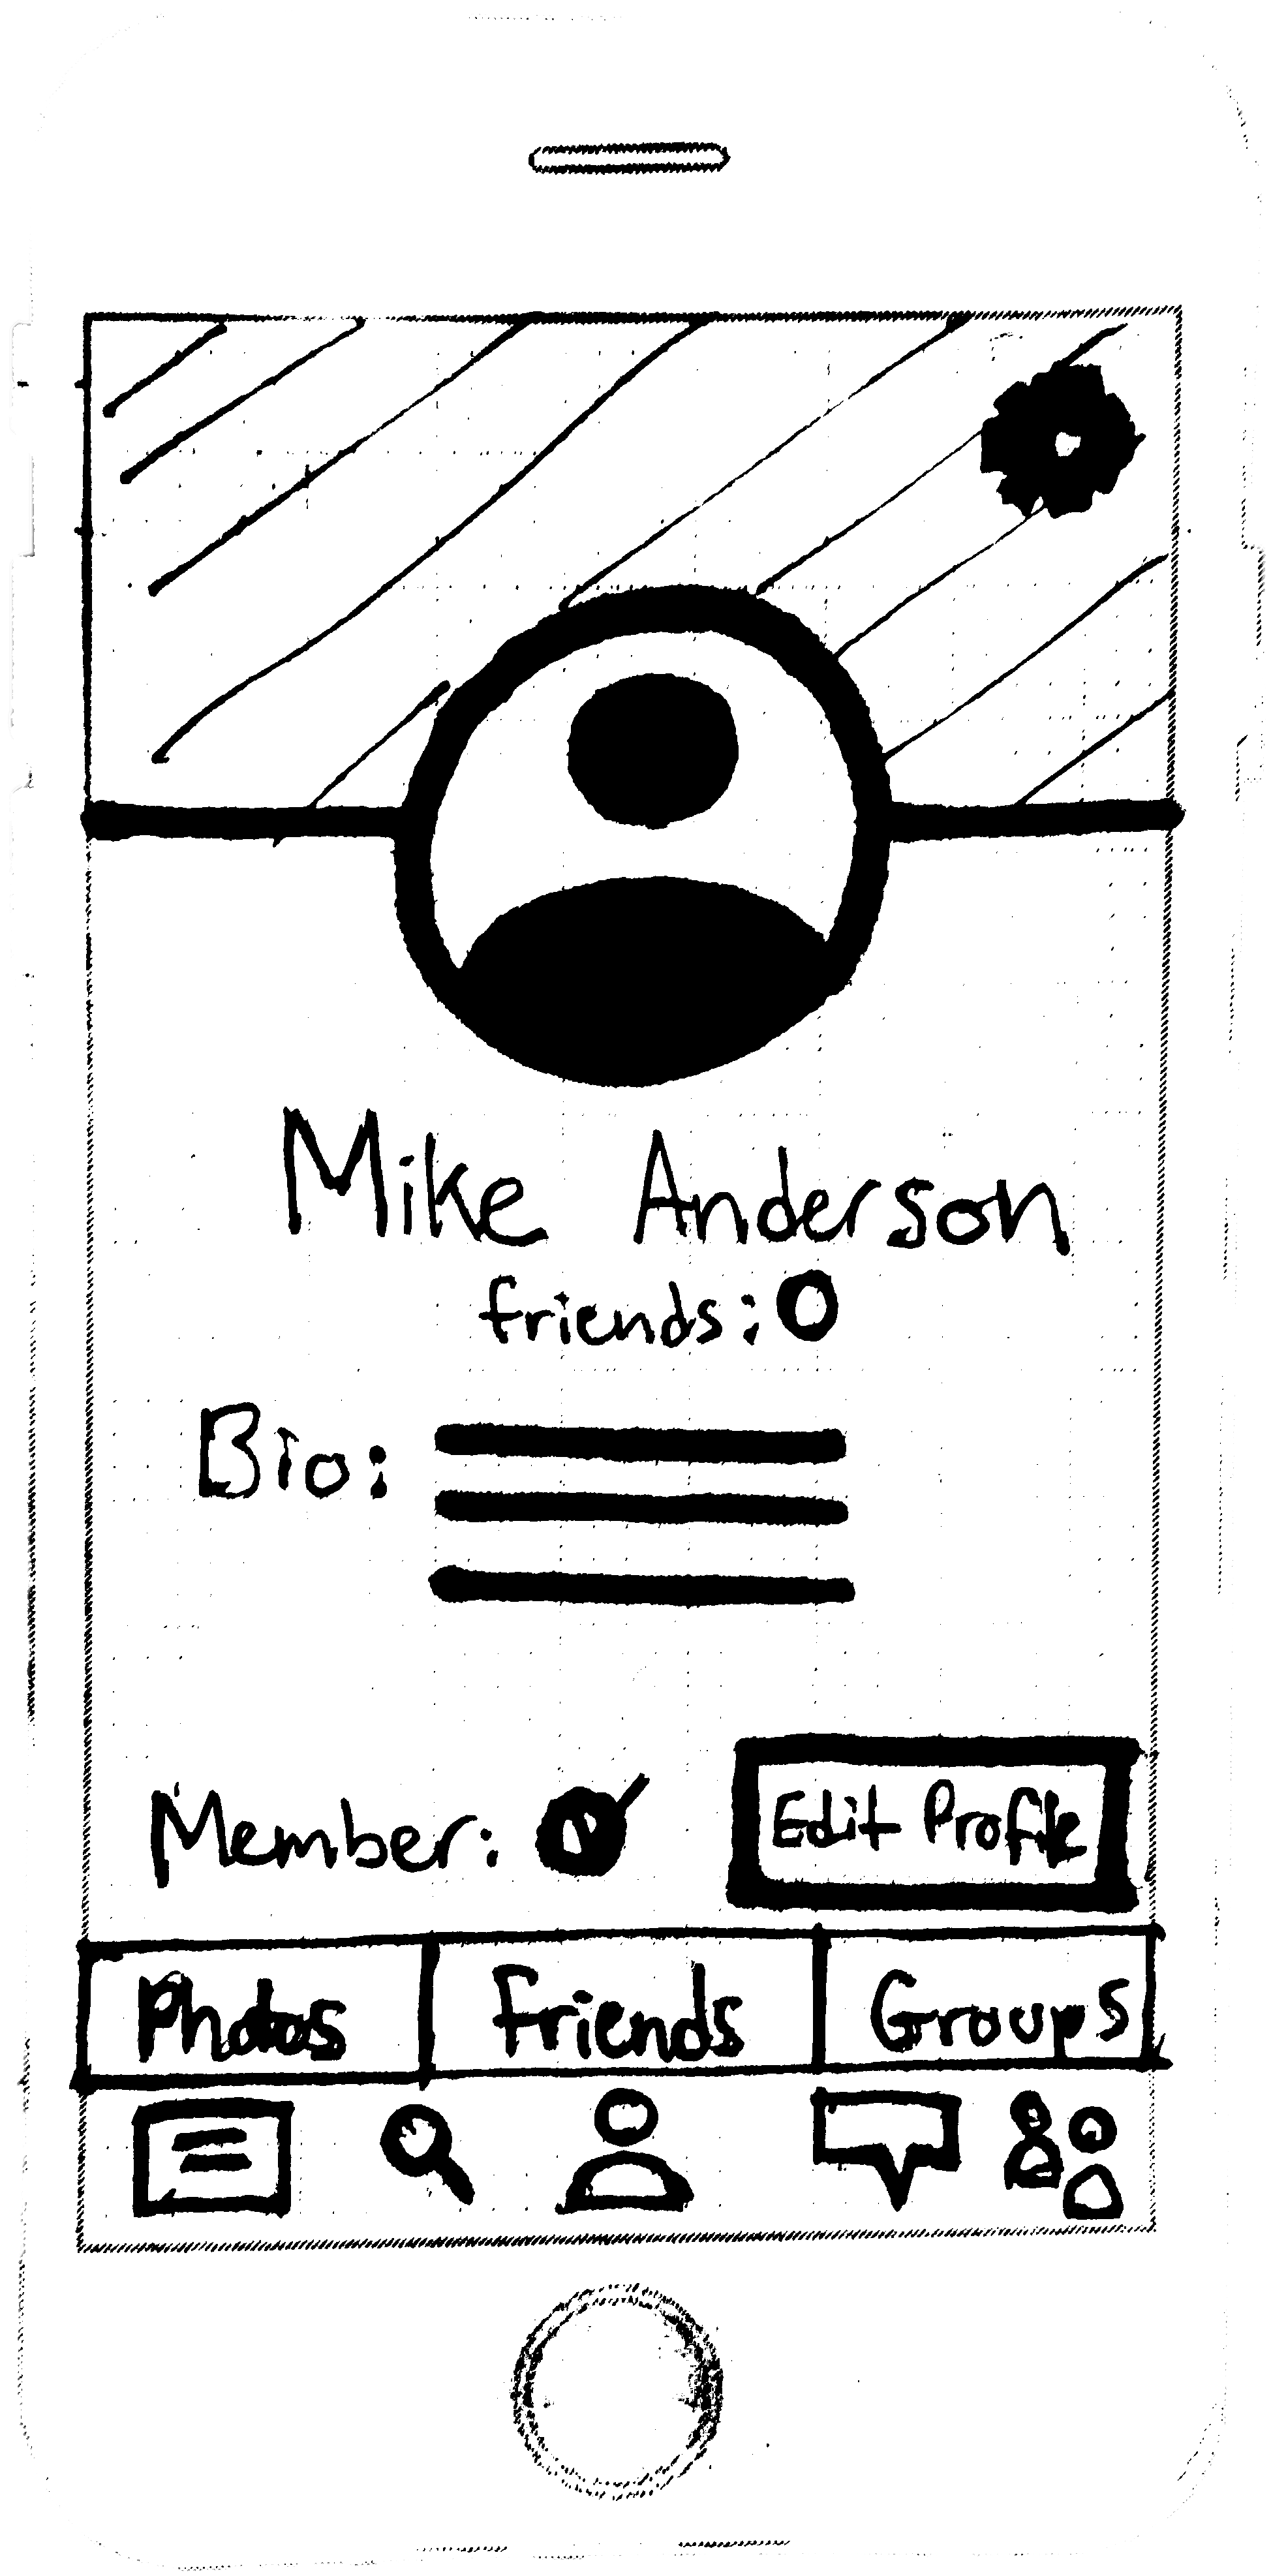 Mike Anderson
friends: 0
Bio:
Member:
Edit Profile
Photos
Friends
Groups